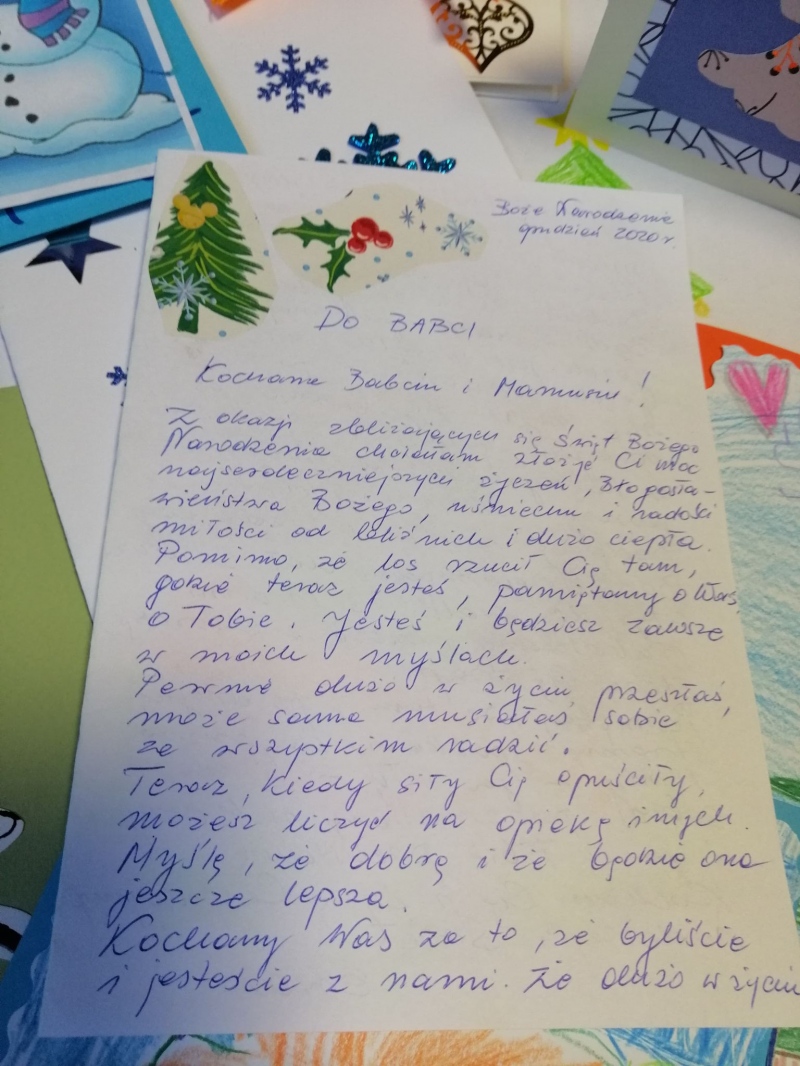 Boże Narodzenie
grudzień 2020 r.
DO BABCI
Kochane Babciu i Mamusiu!
Z okazji zbliżających się Świąt Bożego
Narodzenia chciałam złożyć Ci moc
najserdeczniejszych życzeń, błogosła-
wieństwa Bożego, uśmiechu i radości
miłości od bliźnich i dużo ciepła.
Pomimo, że los rzucił Cię tam,
gdzie teraz jesteś, pamiętamy o Was
o Tobie. Jesteś i będziesz zawsze
w moich myślach.
Pewnie dużo w życiu przeszłaś,
może sama musiałaś sobie
ze wszystkim radzić.
Teraz, kiedy siły Cię opuściły,
możesz liczyć na opiekę innych.
Myślę, że dobrą i że będzie ona
jeszcze lepsza.
Kochamy Was za to, że byliście
i jesteście z nami. Że dużo w życiu